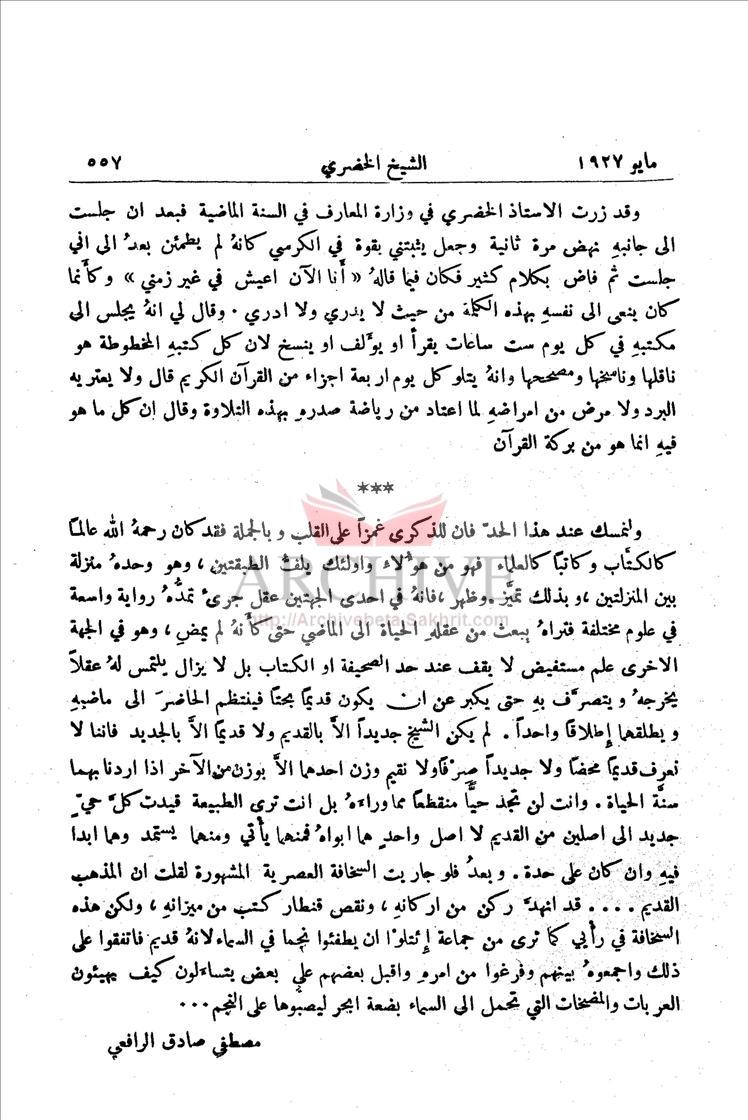 مايو ١٩٢٧ الشيخ الخضري ٥٥٧
وقد زرت الاستاذ الخضري في وزارة المعارف في السنة الماضية فبعد ان جلست
الى جانبهِ نهض مرة ثانية وجعل يثبتني بقوة في الكرسي كانهُ لم يطمئن بعدُ الى اني
جلست ثم فاض بكلام كثير فكان فيما قالهُ « أنا الآن اعيش في غير زمني » وكأنما
كان ينعى الى نفسهِ بهذه الكلمة من حيث لا يدري ولا ادري . وقال لي انهُ يجلس الى
مكتبهِ في كل يوم ست ساعات يقرأ او يؤلف او ينسخ لان كل كتبهِ المخطوطة هو
ناقلها وناسخها ومصححها وانهُ يتلو كل يوم اربعة اجزاء من القرآن الكريم قال ولا يعتريه
البرد ولا مرض من امراضهِ لما اعتاد من رياضة صدره بهذه التلاوة وقال ان كل ما هو
فيهِ انما هو من بركة القرآن
***
ولنمسك عند هذا الحدّ فان للذكرى غمزاً على القلب وبالجملة فقد كان رحمهُ الله عالماً
كالكتّاب وكاتباً كالعلماء فهو من هؤلاء واولئك يلفّ الطبقتين ، وهو وحدهُ منزلة
بين المنزلتين ، وبذلك تميّز وظهر ، فانهُ في احدى الجهتين عقل جريء تمدُّهُ رواية واسعة
في علوم مختلفة فتراهُ يبعث من عقلهِ الحياة الى الماضي حتى كأنهُ لم يمضِ ، وهو في الجهة
الاخرى علم مستفيض لا يقف عند حد الصحيفة او الكتاب بل لا يزال يلتمس لهُ عقلاً
يخرجهُ ويتصرَّف بهِ حتى يكبر عن ان يكون قديماً بحتاً فينتظم الحاضرَ الى ماضيهِ
ويطلقهما إطلاقاً واحداً . لم يكن الشيخ جديداً الاَّ بالقديم ولا قديماً الاَّ بالجديد فاننا لا
نعرف قديماً محضاً ولا جديداً صِرفاً ولا نقيم وزن احدهما الاَّ بوزن من الآخر اذا اردنا بهما
سنَّة الحياة . وانت لن تجد حيًّا منقطعاً مما وراءهُ بل انت ترى الطبيعة قيدت كلَّ حيّ
جديد الى اصلين من القديم لا اصل واحدٍ هما ابواهُ فمنهما يأتي ومنهما يستمد وهما ابداً
فيهِ وان كان على حدة . وبعدُ فلو جاريت السخافة العصرية المشهورة لقلت ان المذهب
القديم .... قد انهدَّ ركن من اركانهِ ، ونقص قنطار كتب من ميزانهِ ، ولكن هذه
السخافة في رأيي كما ترى من جماعة إئتلوا ان يطفئوا نجماً في السماء لانهُ قديم فاتفقوا على
ذلك واجمعوهُ بينهم وفرغوا من امره واقبل بعضهم على بعض يتساءلون كيف يهيئون
العربات والمضخات التي تحمل الى السماء بضعة ابحر ليصبّوها على النجم ...
مصطفى صادق الرافعي
ARCHIVE
http://Archivebeta.Sakhrit.com